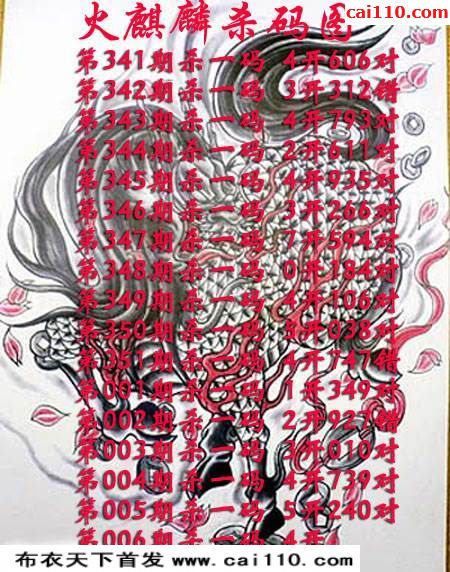 cai110.com
火麒麟杀码图
第341期杀一码 4开606对
第342期杀一码 3开312错
第343期杀一码 4开793对
第344期杀一码 2开611对
第345期杀一码 4开935对
第346期杀一码 3开266对
第347期杀一码 7开594对
第348期杀一码 0开184对
第349期杀一码 4开106对
第350期杀一码 5开038对
第351期杀一码 4开747错
第001期杀一码 1开349对
第002期杀一码 2开927错
第003期杀一码 3开010对
第004期杀一码 4开739对
第005期杀一码 5开240对
第006期杀一码 4开
布衣天下首发 www.cai110.com